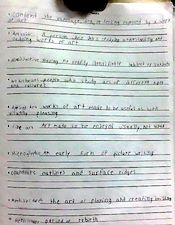 • Content the message, idea, or feeling expressed by a work
of art
• Artistic a person who has a
making works of art
• nonobjective having no readily identifiable subjects or objects
people who study art of different ages
and cultures
• applied art works of art made to be useful as well
visually pleasing
• fine art Art made to be enjoyed visually, not used
• Hieroglyphic an early form of picture writing
• contours outlines and surface ridges
• Architecture the art of planning and creating buildings
• Renaissance period of rebirth